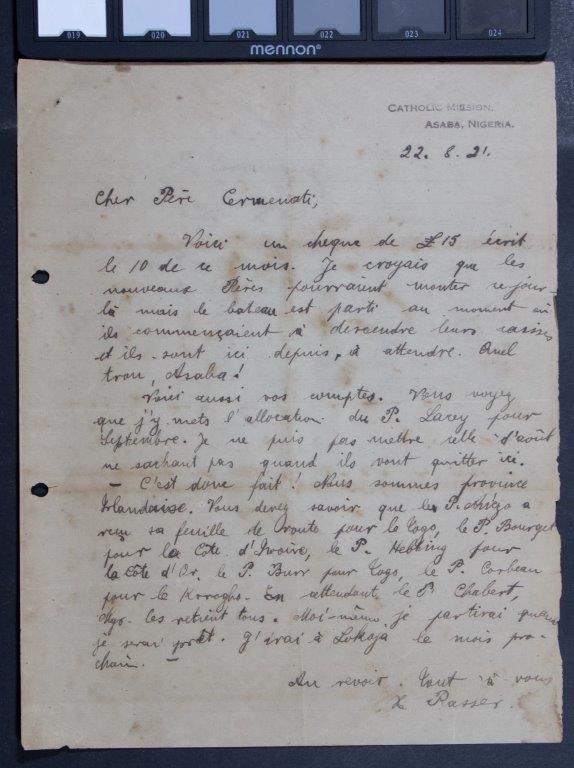 019 020 021 022 023 024
mennon®
CATHOLIC MISSION,
ASABA, NIGERIA.
22. 8. 21.
Cher Père Cermenati,
Voici un chèque de £15 écrit
le 10 de ce mois. Je croyais que les
nouveaux Pères pourraient monter ce jour-
là mais le bateau est parti au moment où
ils commençaient à descendre leurs caisses
et ils sont ici depuis, à attendre. Quel
trou, Asaba!
Voici aussi vos comptes. Vous voyez
que j'y mets l'allocation du P. Lacey pour
Septembre. Je ne puis pas mettre celle d'août
ne sachant pas quand ils vont quitter ici.
- C'est donc fait! Nous sommes province
Irlandaise. Vous devez savoir que le P.
reçu sa feuille de route pour le Togo, le P. Bourget
pour la Côte d'Ivoire, le P. Hebting pour
la Côte d'Or, le P. Burr pour Togo, le P. Corbeau
pour le Korogho. En attendant le P. Chabert,
Mgr. les retient tous. Moi-même je partirai quand
je serai prêt. J'irai à Lokoja le mois pro-
chain. -
Au revoir. Tout à vous
Rasser.